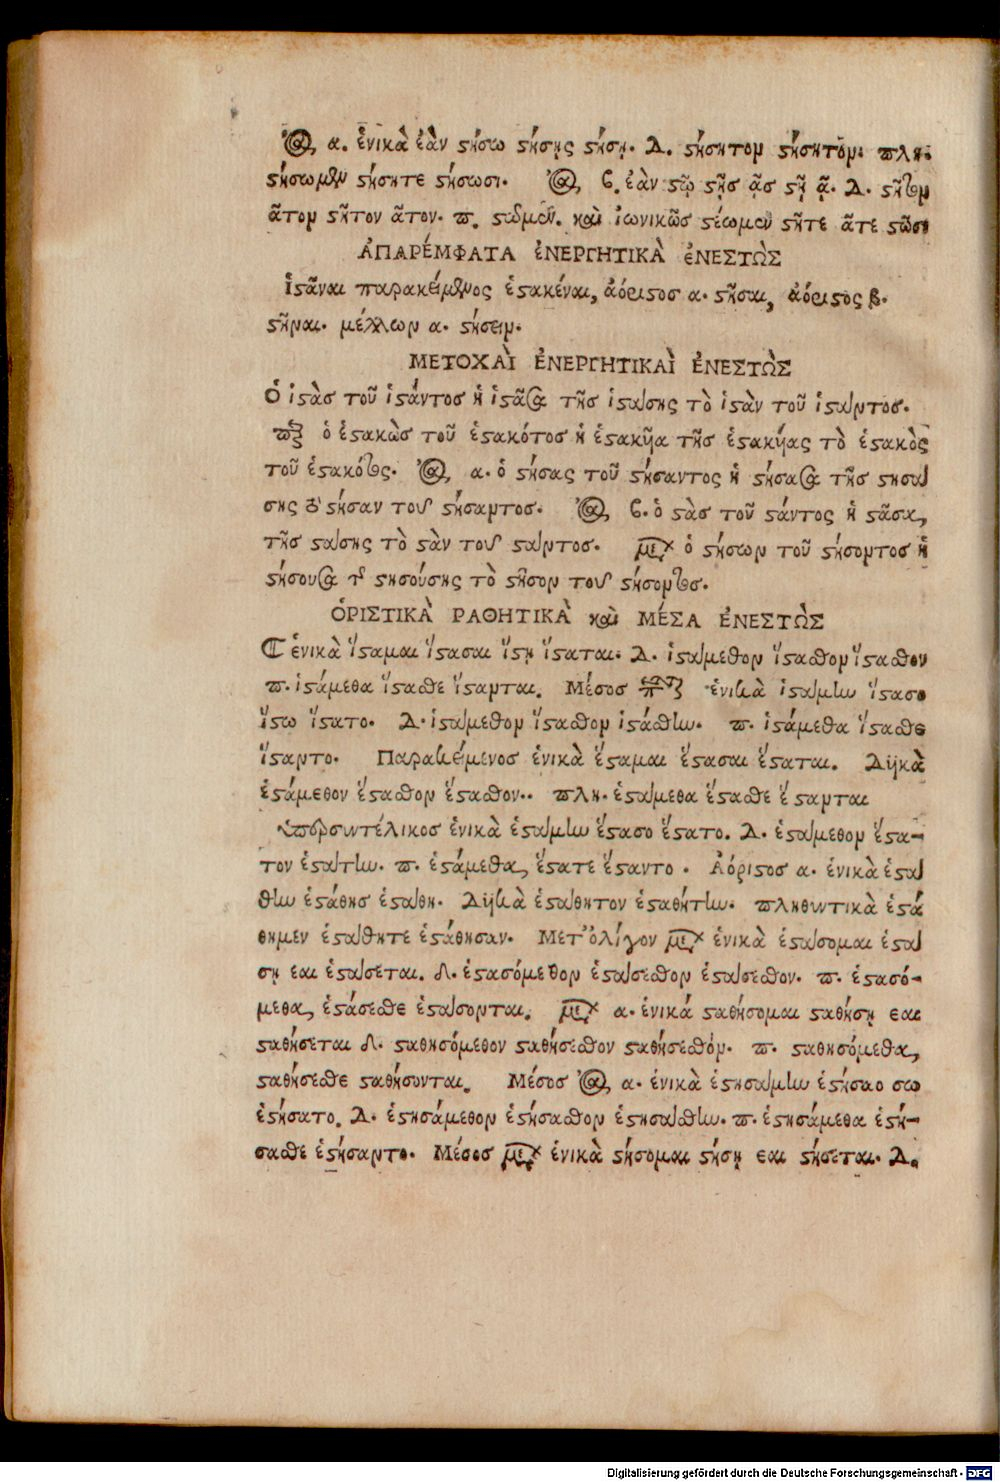 α. ἑνικὰ ἐὰν στήσω στήσῃς στήσῃ. Δ. στήσητον στήσητον. πλη.
στήσωμεν στήσητε στήσωσι. β. ἐὰν στῶ στῇσ ᾇσ στῇ ᾇ. Δ. στῆτον
ἆτον στῆτον ἆτον. π. στῶμεν. καὶ ἰωνικῶσ στέωμεν στῆτε ἆτε στῶσι
ἈΠΑΡΈΜΦΑΤΑ ἘΝΕΡΓΗΤΙΚᾺ ἐΝΕΣΤῺΣ
ἱστᾶναι παρακείμενος ἑστακέναι, ἀόριστοσ α. στῆσαι, ἀόριστος β.
στῆναι. μέλλων α. στήσειν.
ΜΕΤΟΧΑῚ ἘΝΕΡΓΗΤΙΚΑῚ ἘΝΕΣΤῺΣ
Ὁ ἱστὰσ τοῦ ἱστάντοσ ἡ ἱστᾶσα τῆσ ἱστάσης τὸ ἱστὰν τοῦ ἱστάντοσ.
ὁ ἑστακὼσ τοῦ ἑστακότοσ ἡ ἑστακῆα τῆσ ἑστακήας τὸ ἑστακὸς
τοῦ ἑστακότος. α. ὁ στήσας τοῦ στήσαντος ἡ στήσασα τῆσ στησά
σης τὸ στήσαν τοῦ στήσαντοσ. β. ὁ στὰσ τοῦ στάντος ἡ στᾶσα,
τῆσ στάσης τὸ στὰν τοῦ στάντοσ. ὁ στήσων τοῦ στήσοντοσ ἡ
στήσουσα τ στησούσης τὸ στῆσον τοῦ στήσοντοσ.
ὉΡΙΣΤΙΚᾺ ΡΑΘΗΤΙΚᾺ καὶ ΜΈΣΑ ἘΝΕΣΤῺΣ
ἑνικὰ ἵσταμαι ἵστασαι ἵστῃ ἵσταται. Δ. ἱστάμεθον ἵστασθον ἵστασθον
π. ἱστάμεθα ἵστασθε ἵστανται. Μέσοσ ἑνικὰ ἱστάμην ἵστασο
ἵστω ἵστατο. Δ. ἱστάμεθον ἵστασθον ἱστάσθην. π. ἱστάμεθα ἵστασθε
ἵσταντο. Παρακείμενοσ ἑνικὰ ἕσταμαι ἕστασαι ἕσταται. Δυϊκὰ
ἑστάμεθον ἕστασθον ἕστασθον.. πλη. ἑστάμεθα ἕστασθε ἕστανται
ὑπερσυντέλικοσ ἑνικὰ ἑστάμην ἕστασο ἕστατο. Δ. ἑστάμεθον ἕστα-
τον ἑστάτην. π. ἑστάμεθα, ἕστατε ἕσταντο. Ἀόριστοσ α. ἑνικὰ ἐστά
θην ἐστάθησ ἐστάθη. Δυϊκὰ ἐστάθητον ἐσταθήτην. πληθυντικὰ ἐστά
θημεν ἐστάθητε ἐστάθησαν. Μετ᾽ὀλίγον ἑνικὰ ἑστάσομαι ἑστά
σῃ εαι ἑστάσεται. Δ. ἑστασόμεθον ἑστάσεσθον ἑστάσεσθον. π. ἑστασό-
μεθα, ἑστάσεσθε ἑστάσονται. α. ἑνικά σταθήσομαι σταθήσῃ εαι
σταθήσεται Δ. σταθησόμεθον σταθήσεσθον σταθήσεσθόν. π. σταθησόμεθα,
σταθήσεσθε σταθήσονται. Μέσοσ α. ἑνικὰ ἐστησάμην ἐστήσαο σω
ἐστήσατο. Δ. ἐστησάμεθον ἐστήσασθον ἐστησάσθην. π. ἐστησάμεθα ἐστή-
σασθε ἐστήσαντο. Μέσοσ ἑνικὰ στήσομαι στήσῃ εαι στήσεται. Δ.
Digitalisierung gefördert durch die Deutsche Forschungsgemeinschaft - DFG